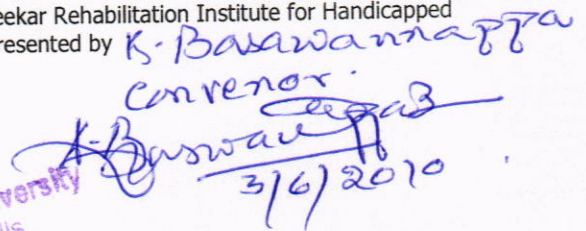 eekar Rehabilitation Institute for Handicapped
resented by K. Basawannappa
Convenor.
K. Baswan
3/6/2010
versity